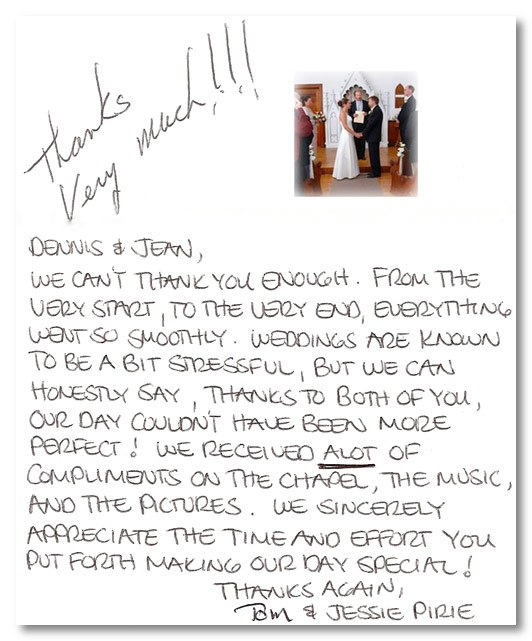 Thanks
Very much!!!
DENNIS & JEAN,
WE CAN'T THANK YOU ENOUGH. FROM THE
VERY START, TO THE VERY END, EVERYTHING
WENT SO SMOOTHLY. WEDDINGS ARE KNOWN
TO BE A BIT STRESSFUL, BUT WE CAN
HONESTLY SAY, THANKS TO BOTH OF YOU,
OUR DAY COULDN'T HAVE BEEN MORE
PERFECT! WE RECEIVED ALOT OF
COMPLIMENTS ON THE CHAPEL, THE MUSIC,
AND THE PICTURES. WE SINCERELY
APPRECIATE THE TIME AND EFFORT YOU
PUT FORTH MAKING OUR DAY SPECIAL!
THANKS AGAIN,
TOM & JESSIE PIRIE